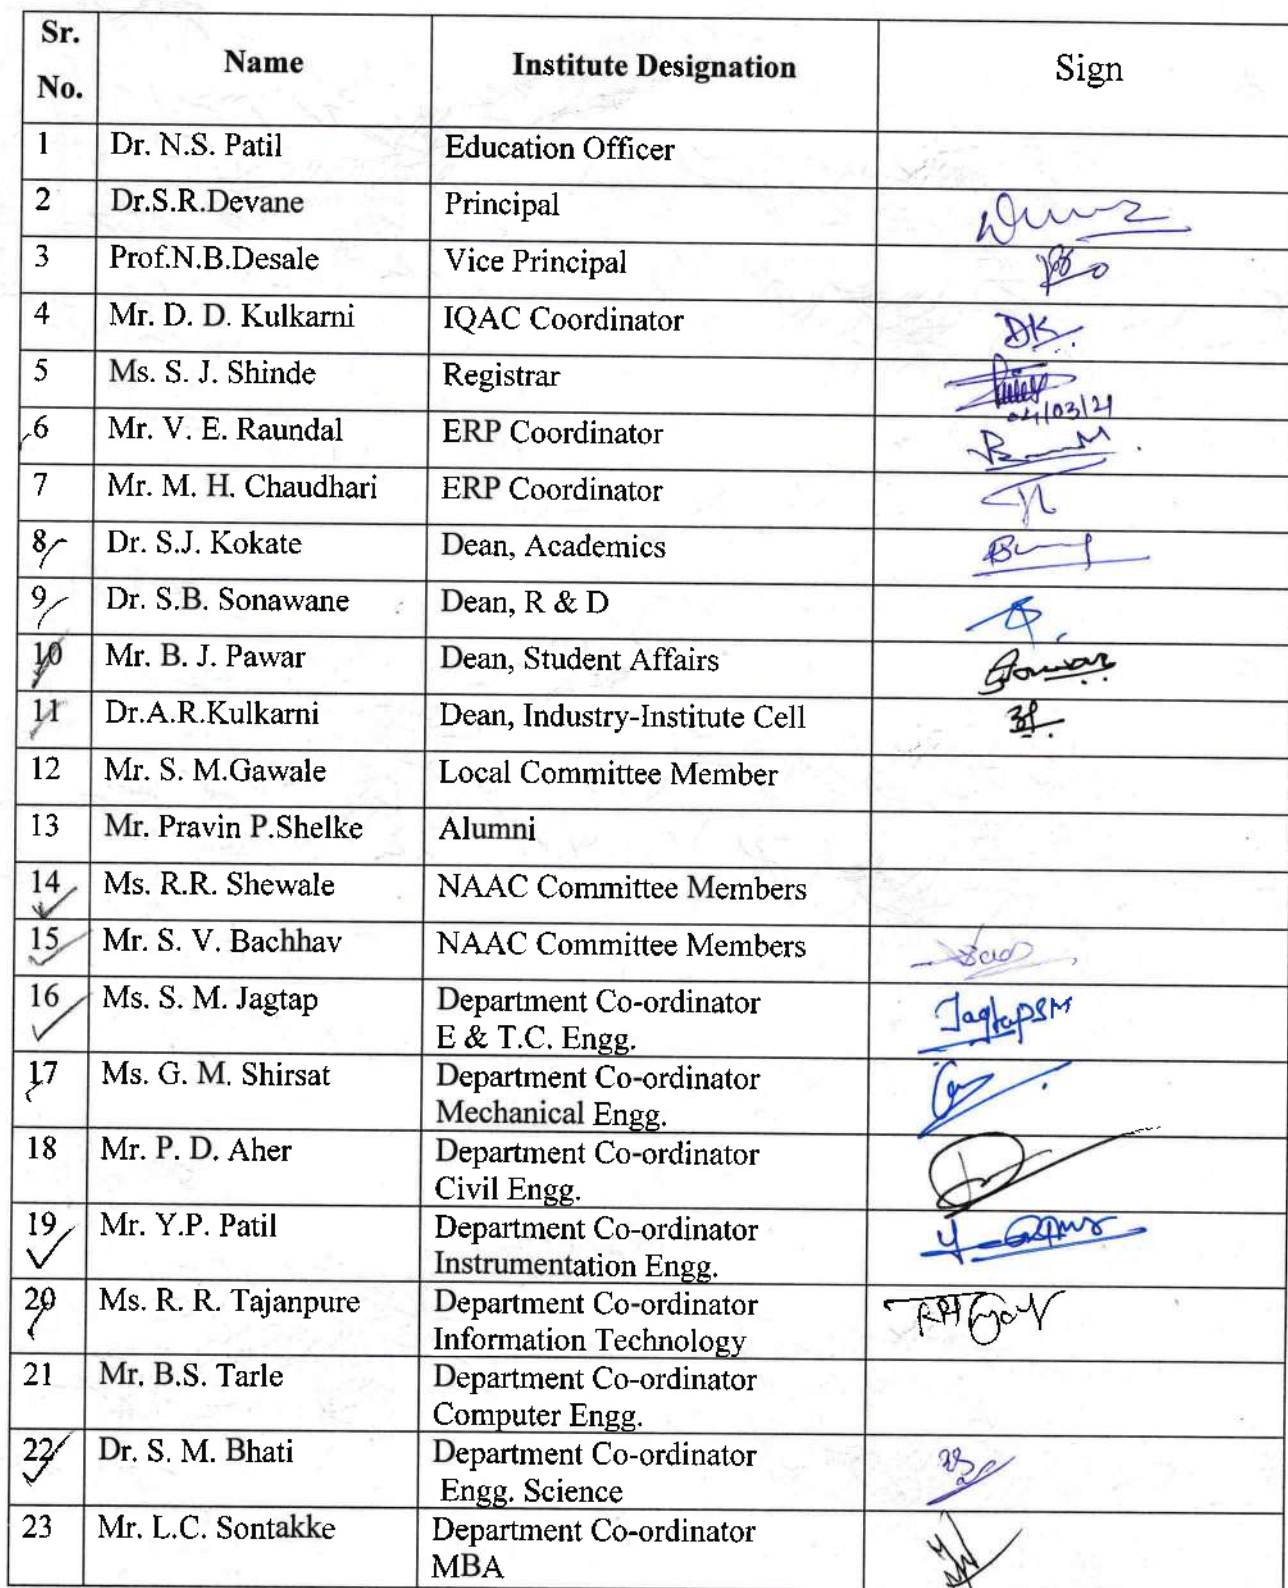 Sr. No. Name Institute Designation Sign
1 Dr. N.S. Patil Education Officer
2 Dr.S.R.Devane Principal
3 Prof.N.B.Desale Vice Principal
4 Mr. D. D. Kulkarni IQAC Coordinator DK.
5 Ms. S. J. Shinde Registrar
04/03/21
6 Mr. V. E. Raundal ERP Coordinator
7 Mr. M. H. Chaudhari ERP Coordinator
8 Dr. S.J. Kokate Dean, Academics
9 Dr. S.B. Sonawane Dean, R & D
10 Mr. B. J. Pawar Dean, Student Affairs
11 Dr.A.R.Kulkarni Dean, Industry-Institute Cell
12 Mr. S. M.Gawale Local Committee Member
13 Mr. Pravin P.Shelke Alumni
14 Ms. R.R. Shewale NAAC Committee Members
15 Mr. S. V. Bachhav NAAC Committee Members
16 Ms. S. M. Jagtap Department Co-ordinator JagtapSM
E & T.C. Engg.
17 Ms. G. M. Shirsat Department Co-ordinator
Mechanical Engg.
18 Mr. P. D. Aher Department Co-ordinator
Civil Engg.
19 Mr. Y.P. Patil Department Co-ordinator
Instrumentation Engg.
20 Ms. R. R. Tajanpure Department Co-ordinator
Information Technology
21 Mr. B.S. Tarle Department Co-ordinator
Computer Engg.
22 Dr. S. M. Bhati Department Co-ordinator
Engg. Science
23 Mr. L.C. Sontakke Department Co-ordinator
MBA